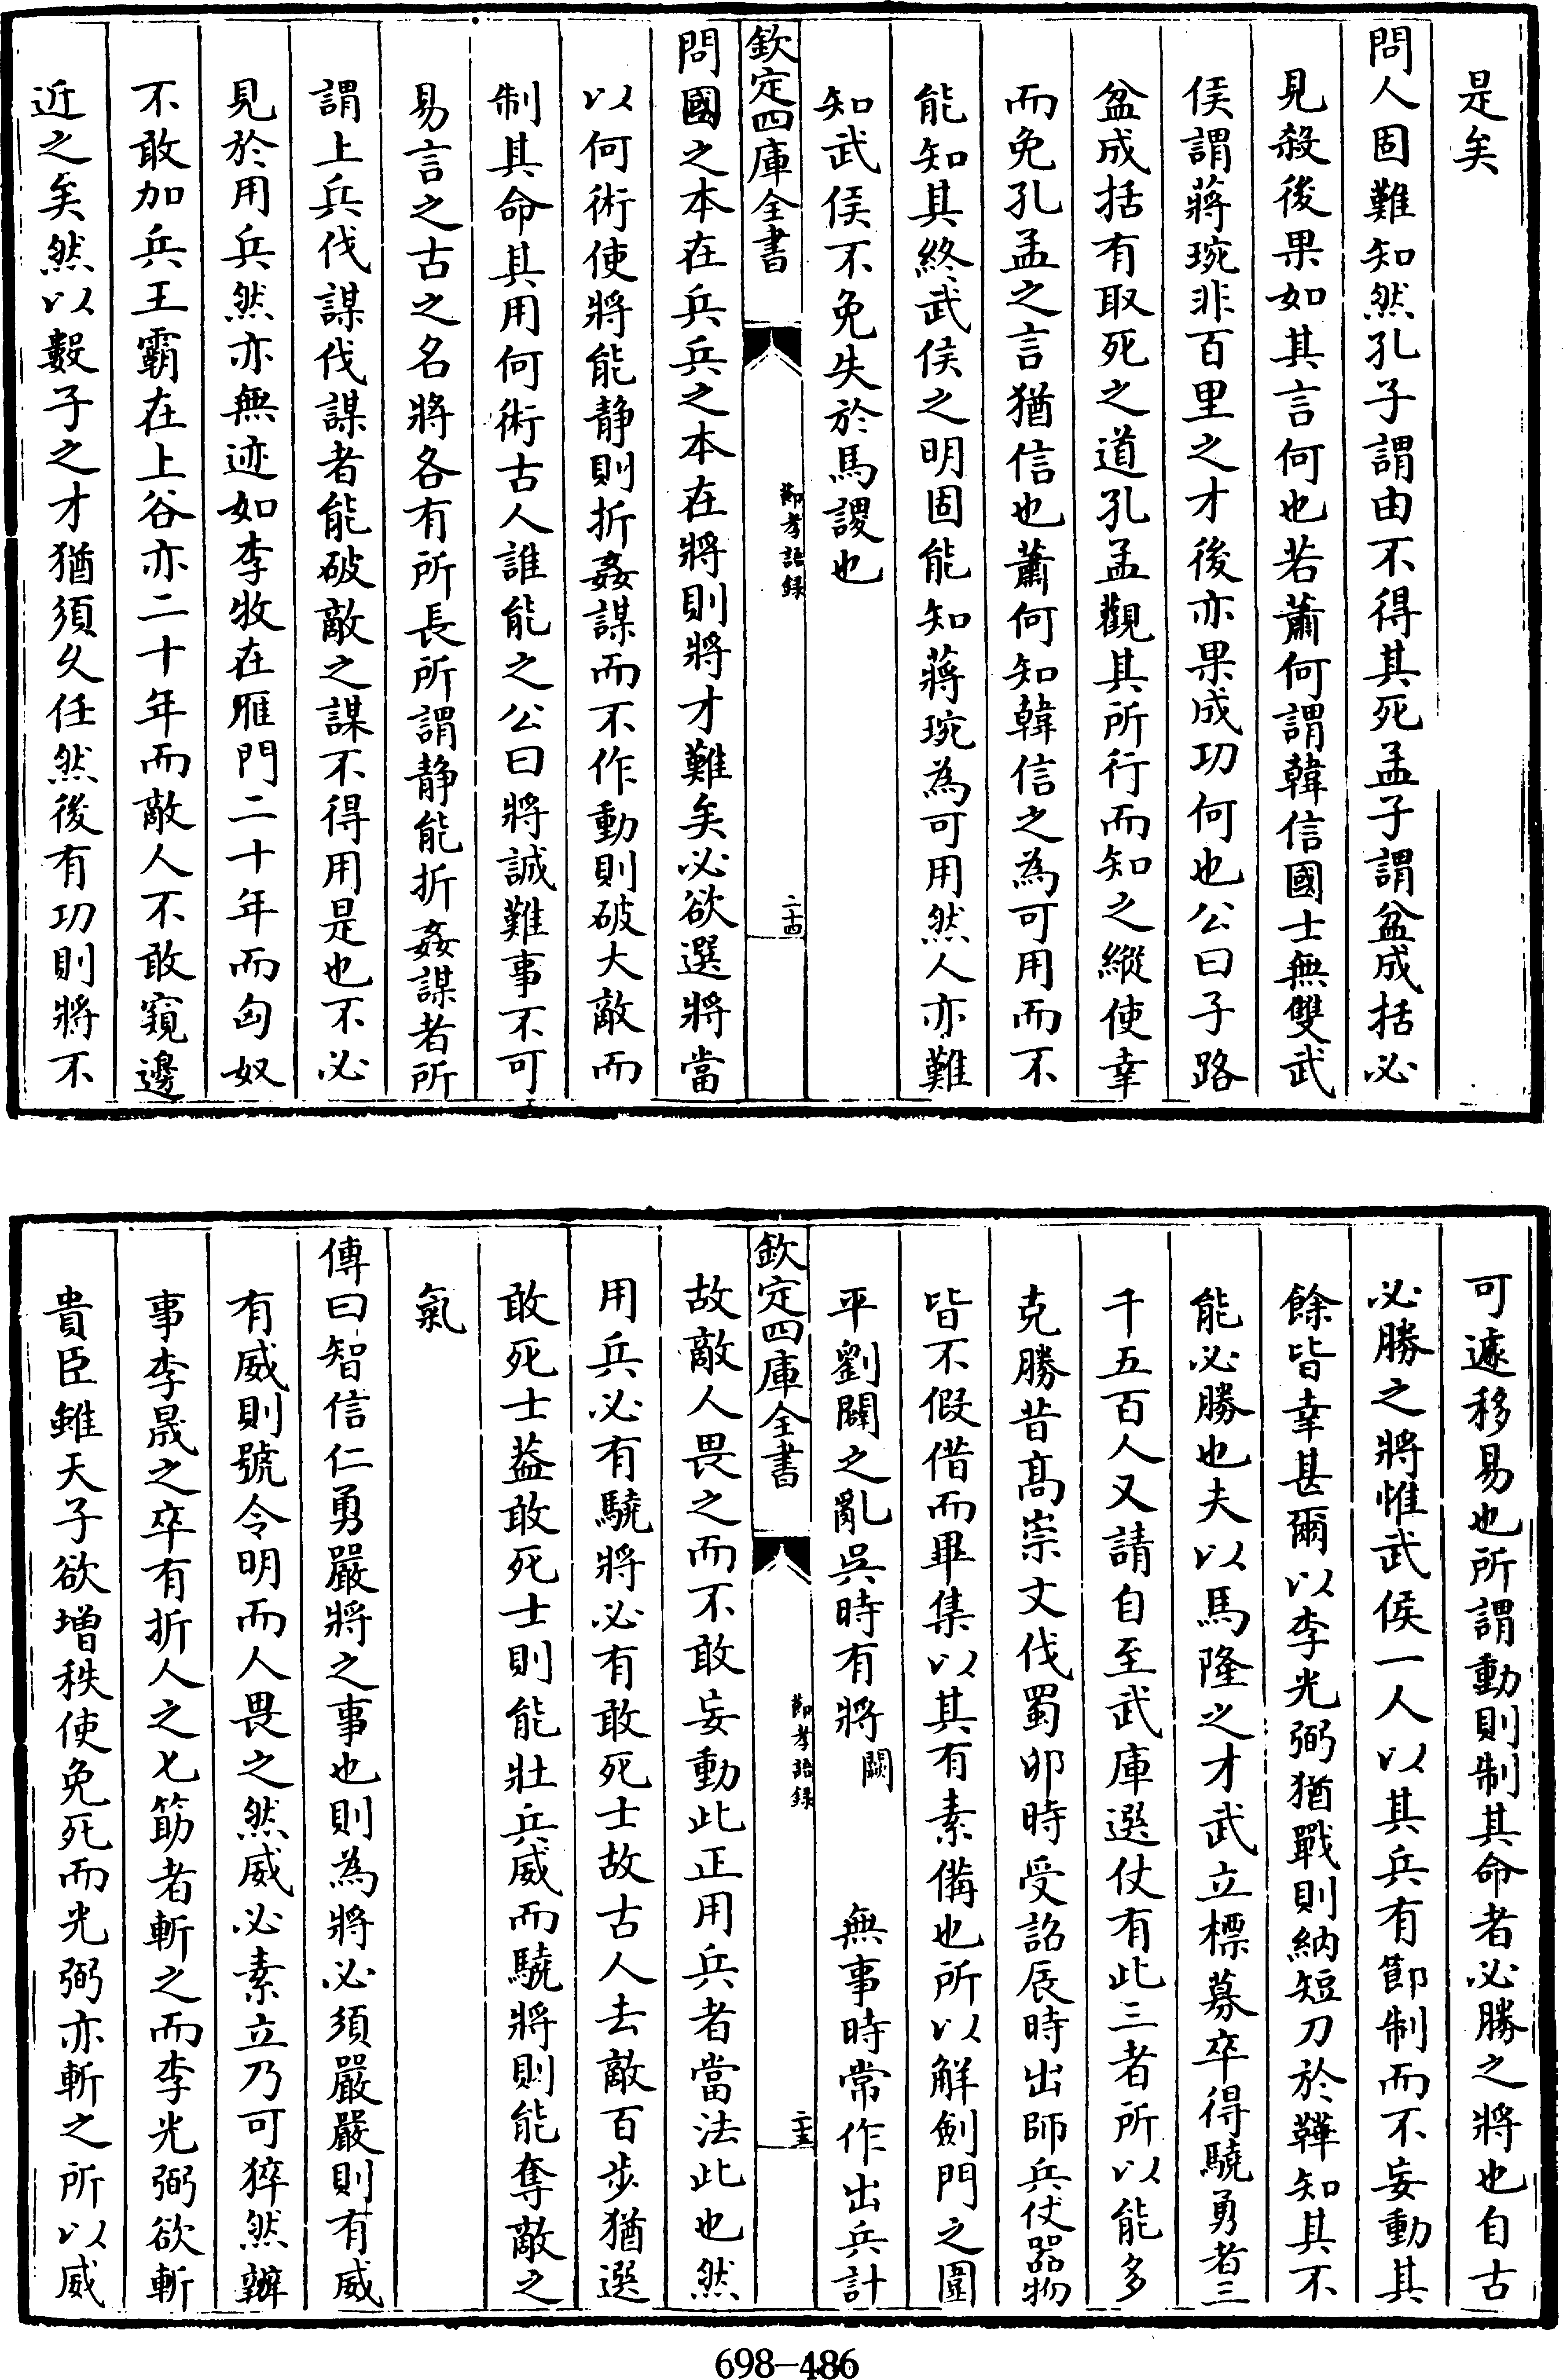 是矣
問人固難知然孔子謂由不得其死孟子謂盆成括必
見殺後果如其言何也若蕭何謂韓信國士無雙武
侯謂蔣琬非百里之才後亦果成功何也公曰子路
盆成括有取死之道孔孟觀其所行而知之縱使幸
而免孔孟之言猶信也蕭何知韓信之為可用而不
能知其終武侯之明固能知蔣琬為可用然人亦難
知武侯不免失於馬謖也
欽定四庫全書 節孝語録 二十四
問國之本在兵兵之本在將則將才難矣必欲選將當
以何術使將能静則折姦謀而不作動則破大敵而
制其命其用何術古人誰能之公曰將誠難事不可
易言之古之名將各有所長所謂静能折姦謀者所
謂上兵伐謀伐謀者能破敵之謀不得用是也不必
見於用兵然亦無迹如李牧在雁門二十年而匈奴
不敢加兵王霸在上谷亦二十年而敵人不敢窺邊
近之矣然以數子之才猶須久任然後有功則將不
可遽移易也所謂動則制其命者必勝之將也自古
必勝之將惟武侯一人以其兵有節制而不妄動其
餘皆幸甚爾以李光弼猶戰則納短刀於鞾知其不
能必勝也夫以馬隆之才武立標募卒得驍勇者三
千五百人又請自至武庫選仗有此三者所以能多
克勝昔髙崇文伐蜀卯時受詔辰時出師兵仗器物
皆不假借而畢集以其有素備也所以解劍門之圍
平劉闢之亂吳時有將 闕 無事時常作出兵計
欽定四庫全書 節孝語録 二十五
故敵人畏之而不敢妄動此正用兵者當法此也然
用兵必有驍將必有敢死士故古人去敵百步猶選
敢死士葢敢死士則能壯兵威而驍將則能奪敵之
氣
傳曰智信仁勇嚴將之事也則為將必須嚴嚴則有威
有威則號令明而人畏之然威必素立乃可猝然辦
事李晟之卒有折人之匕筯者斬之而李光弼欲斬
貴臣雖天子欲增秩使免死而光弼亦斬之所以威
698—486